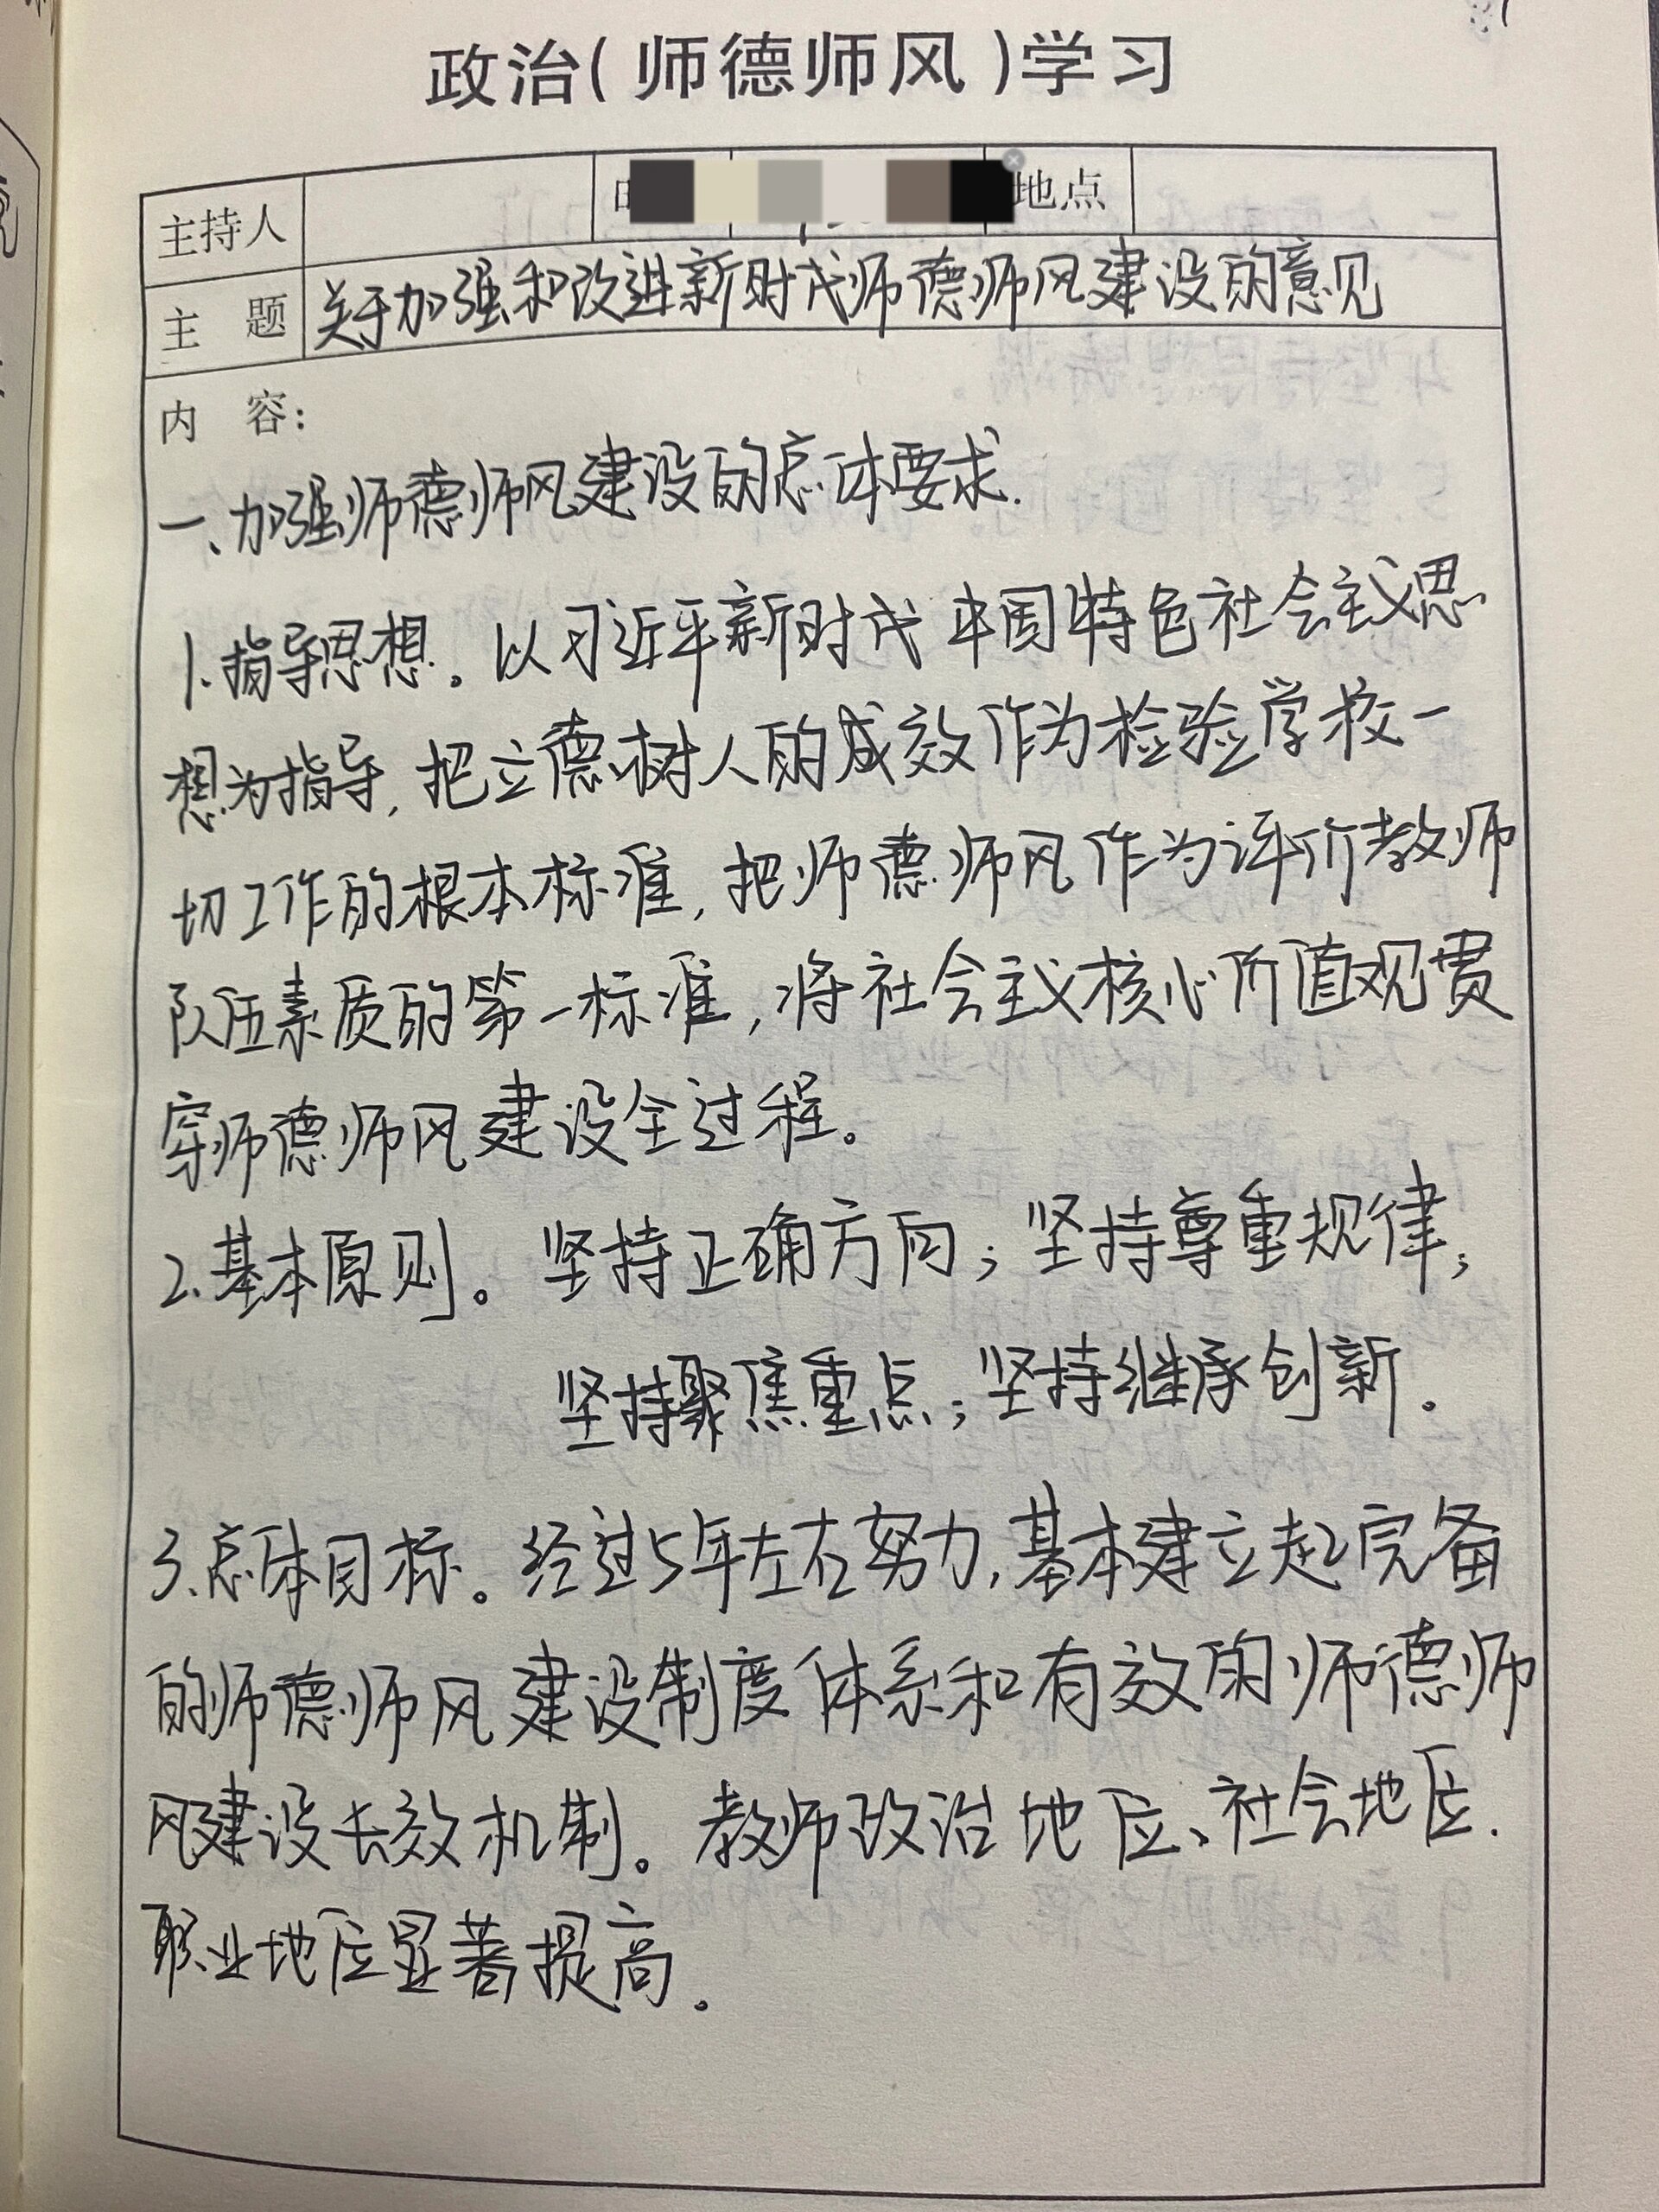 政治(师德师风)学习
主持人 地点
主 题 关于加强和改进新时代师德师风建设的意见
内 容:
一、加强师德师风建设的总体要求.
1.指导思想。以习近平新时代中国特色社会主义思
想为指导,把立德树人的成效作为检验学校一
切工作的根本标准,把师德师风作为评价教师
队伍素质的第一标准,将社会主义核心价值观贯
穿师德师风建设全过程。
2.基本原则。坚持正确方向;坚持尊重规律;
坚持聚焦重点;坚持继承创新.
3.总体目标。经过5年左右努力,基本建立起完备
的师德师风建设制度体系和有效的师德师
风建设长效机制。教师政治地位、社会地位.
职业地位显著提高.